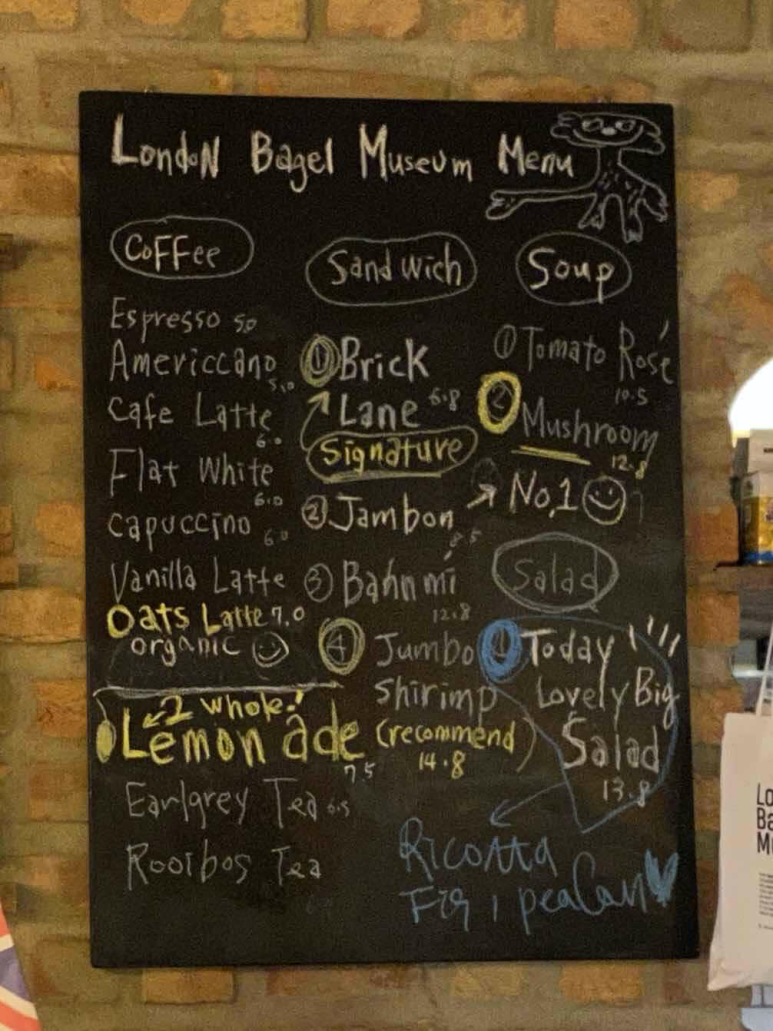 LondoN Bagel Museum Menu
Coffee
Espresso 5.0
Americcano
5.0
Cafe Latte
6.0
Flat White
6.0
capuccino 6.0
Vanilla Latte
Oats Latte 7.0
organic
2 whole!
Lemon ade
7.5
Earlgrey Tea 6.5
Rooibos Tea
Sandwich
① Brick
Lane 6.8
Signature
② Jambon
8.5
③ Bahn mí
12.8
④ Jumbo
Shirimp
(recommend)
14.8
Soup
① Tomato Rosé
10.5
② Mushroom
12.8
→ No.1
Salad
① Today
Lovely Big
Salad
13.8
Ricotta
Fig, peaCan
Lo
Ba
Mu